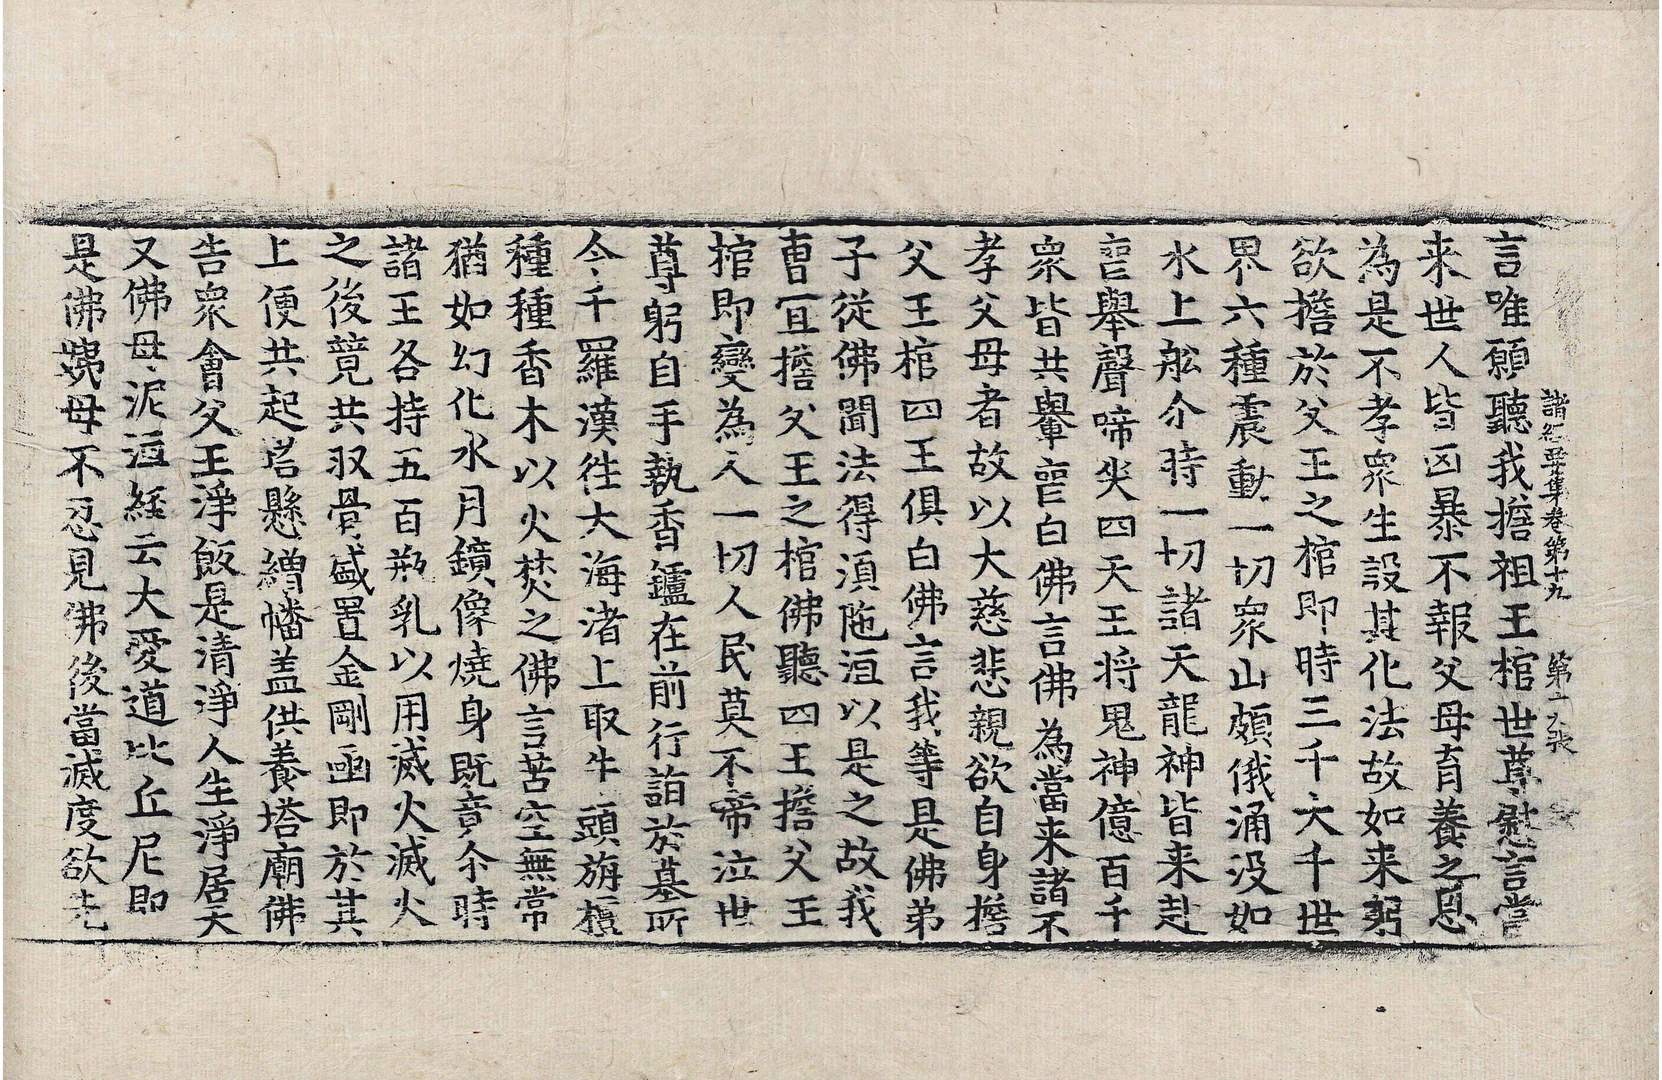 諸經要集卷第十九　第十六張
言唯願聽我擔祖王棺世尊慰言當
来世人皆凶暴不報父母育養之恩
為是不孝衆生設其化法故如来躬
欲擔於父王之棺即時三千大千世
界六種震動一切衆山頗俄涌没如
水上舩尒時一切諸天龍神皆来赴
喪舉聲啼哭四天王将鬼神億百千
衆皆共轝喪白佛言佛為當来諸不
孝父母者故以大慈悲親欲自身擔
父王棺四王俱白佛言我等是佛弟
子從佛聞法得湏陁洹以是之故我
曹冝擔父王之棺佛聽四王擔父王
棺即變為人一切人民莫不啼泣世
尊躬自手執香鑪在前行詣於墓所
令千羅漢往大海渚上取牛頭旃檀
種種香木以火焚之佛言苦空無常
猶如幻化水月鏡像燒身既竟尒時
諸王各持五百瓶乳以用滅火滅火
之後竟共収骨盛置金剛函即於其
上便共起塔懸繒幡盖供養塔廟佛
告衆會父王淨飯是清淨人生淨居天
又佛母泥洹經云大愛道比丘尼即
是佛姨母不忍見佛後當滅度欲先